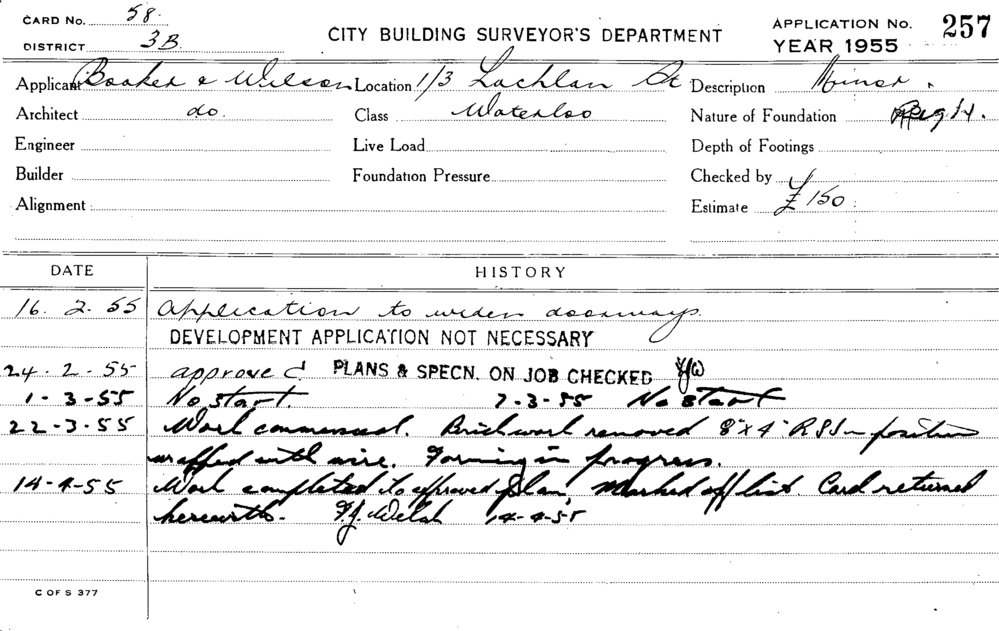 CARD No. 58.
DISTRICT 3B
CITY BUILDING SURVEYOR'S DEPARTMENT
APPLICATION No. 257
YEAR 1955
Applicant Booker & Wilson Location 1/3 Lachlan St Description Minor.
Architect do. Class Waterloo Nature of Foundation
Engineer Live Load Depth of Footings
Builder Foundation Pressure Checked by
Alignment Estimate £150
DATE HISTORY
16. 2. 55 Application to widen doorways.
DEVELOPMENT APPLICATION NOT NECESSARY
24. 2. 55 approved PLANS & SPECN. ON JOB CHECKED
1-3-55 No start. 7-3-55 No start
22-3-55 Work commenced. Brickwork removed 8"x4" RSJ in position
wrapped with wire. Forming in progress.
14-4-55 Work completed to approved plan, Marked off list. Card returned
herewith. F.J. Welsh 14-4-55
C OF S 377